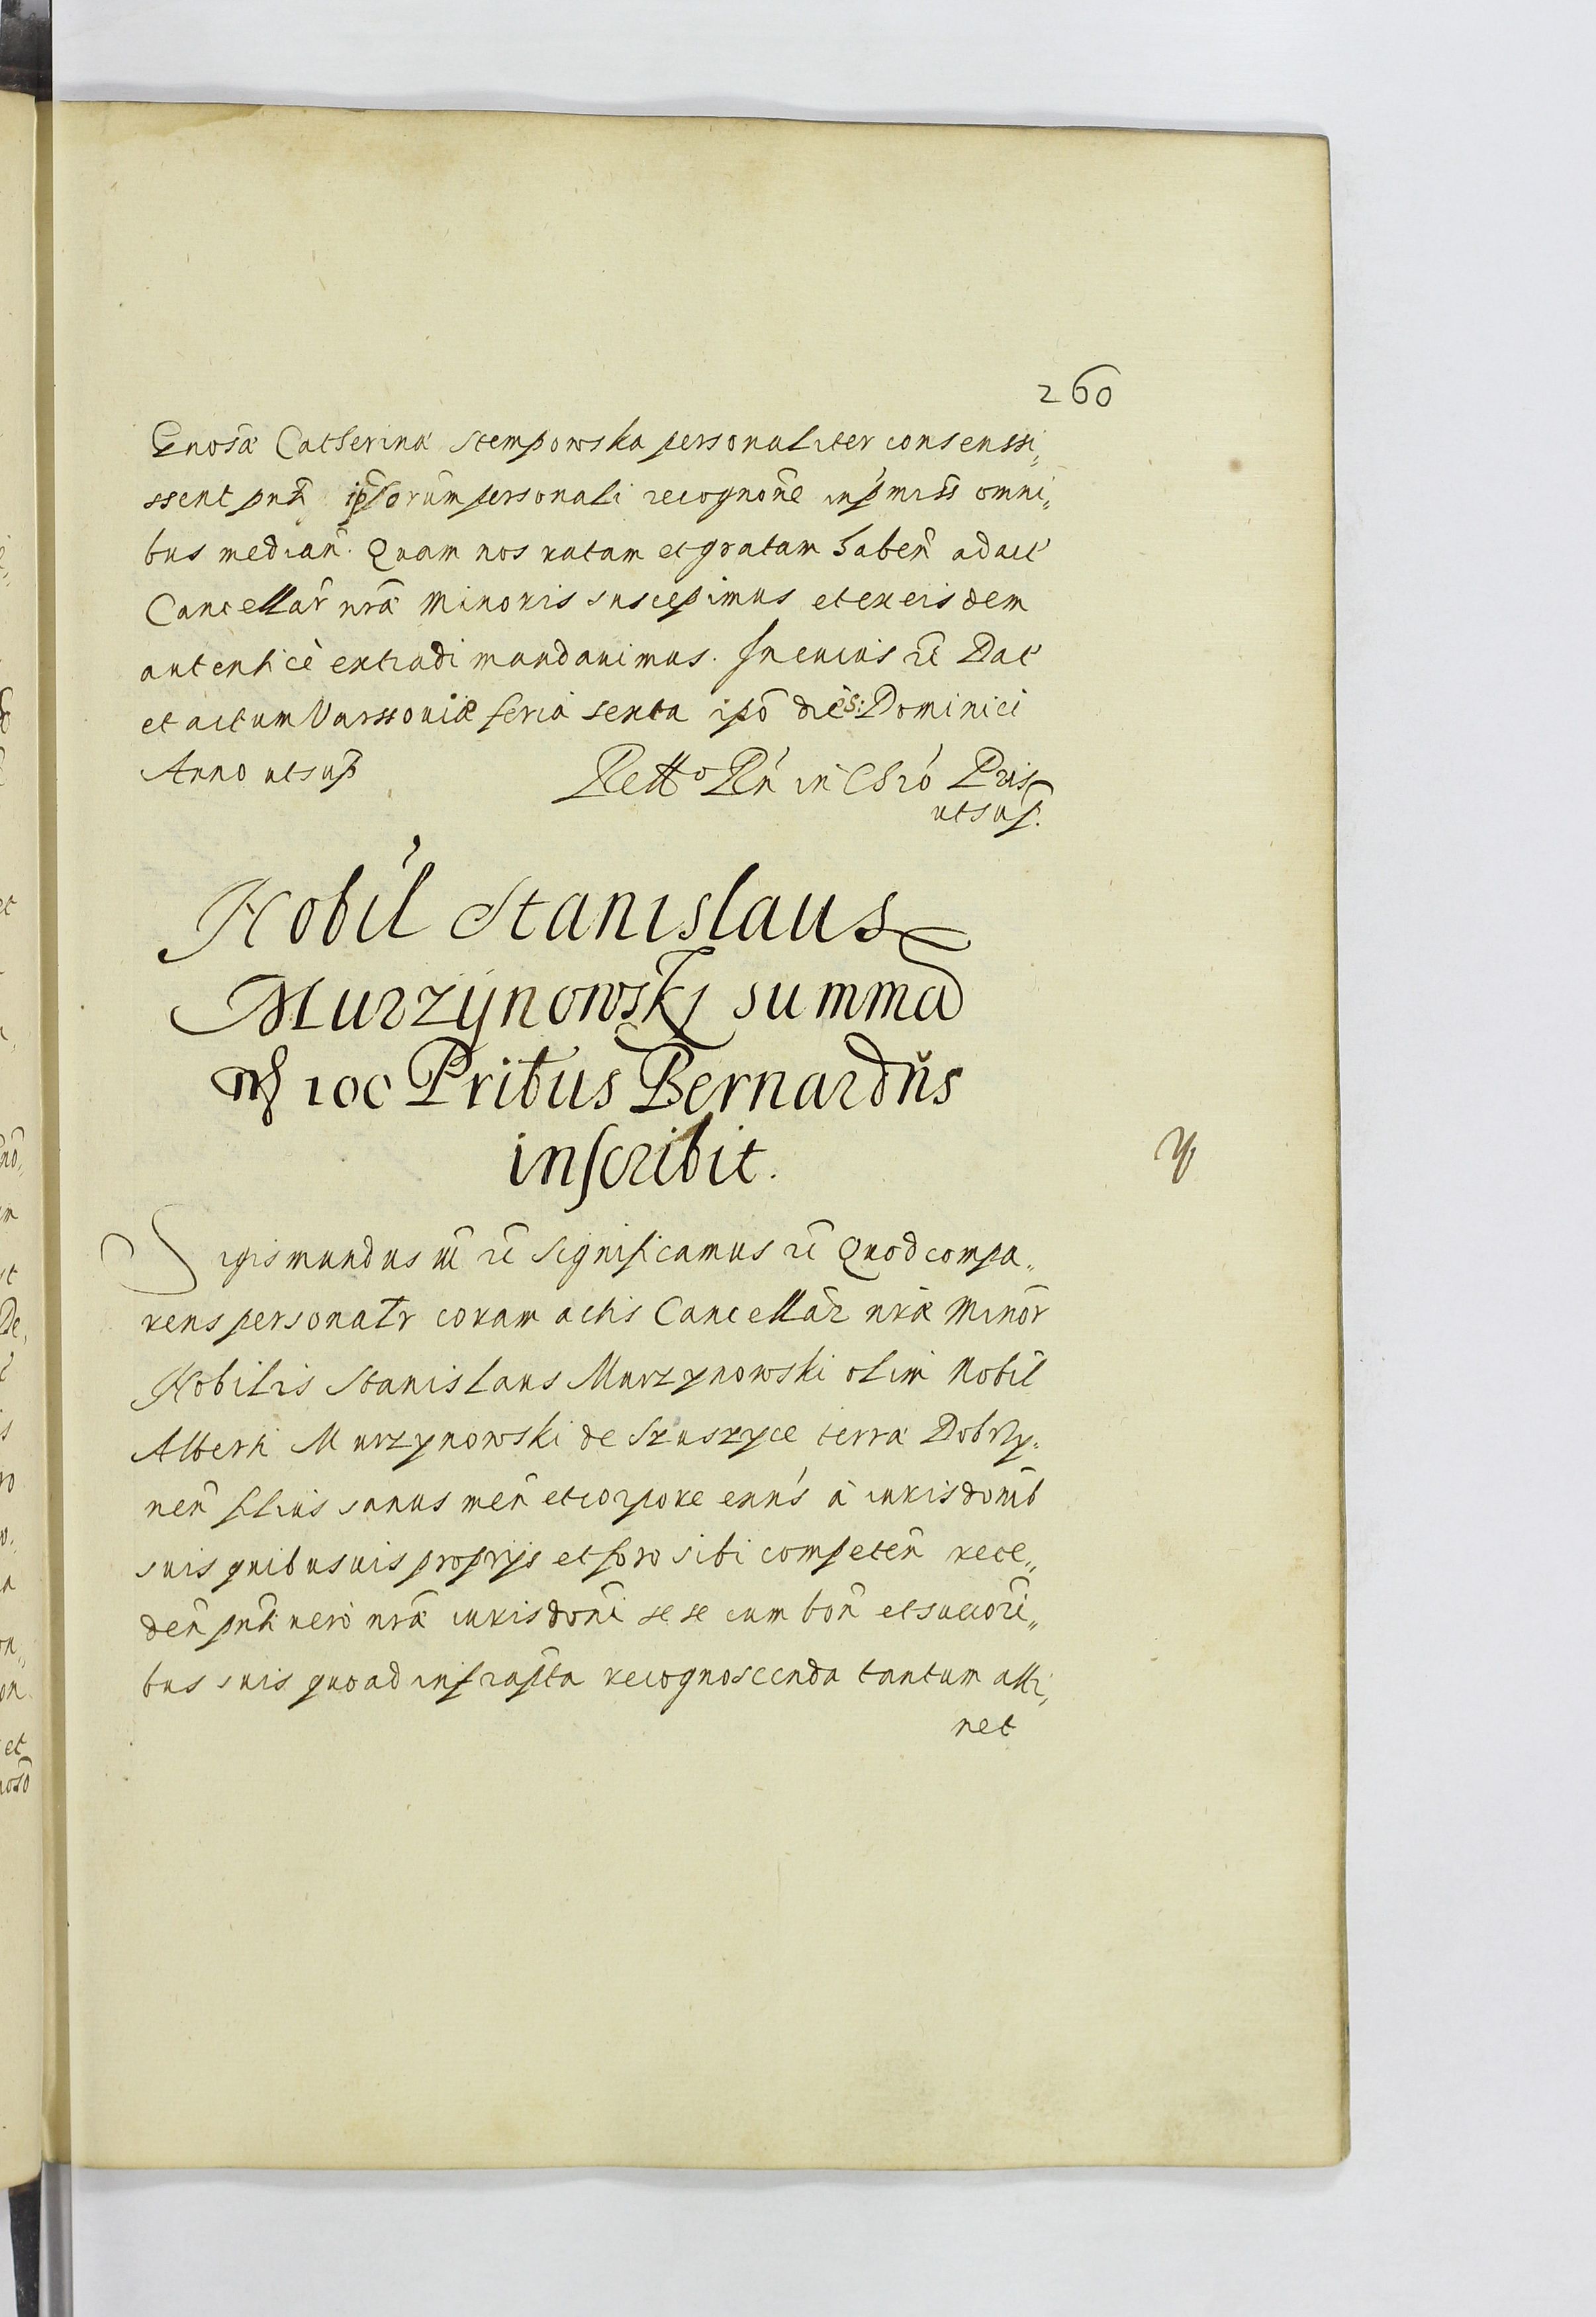 260
Gnosã Catherina Stempowska personaliter consenssi„
ssent pnti ipsorum personali recognone in pmiss omni„
bus median. Quam nos ratam et gratam haben ad act
Cancellar nrã Minoris suscepimus et ex eisdem
autenticè extradi mandavimus. In cuius rẽ Dat
et actum Varssoviæ feria sexta ipõ die S: Dominici
Anno ut sup
Retto Rñ in Chrõ Pris
ut sup.
Nobil Stanislaus
Murzÿnowskj summã
mf 100 Pribus Bernardňs
inscribit.
Sigismundus iii rẽ Significamus rẽ Quod compa„
rens personalr coram actis Cancellar nrã Minor
Nobilis Stanislaus Murzynowski olim Nobil
Alberti Murzynowski de Szuszyce terra Dobrzy„
nen filius sanus men et corpore exns à iurisdonib
suis quibusuis proprÿs et foro sibi competen rece„
den pnti uerò nrã iurisdoni se se cum bon et succori„
bus suis quo ad infrapta recognoscenda tantum atti„
net